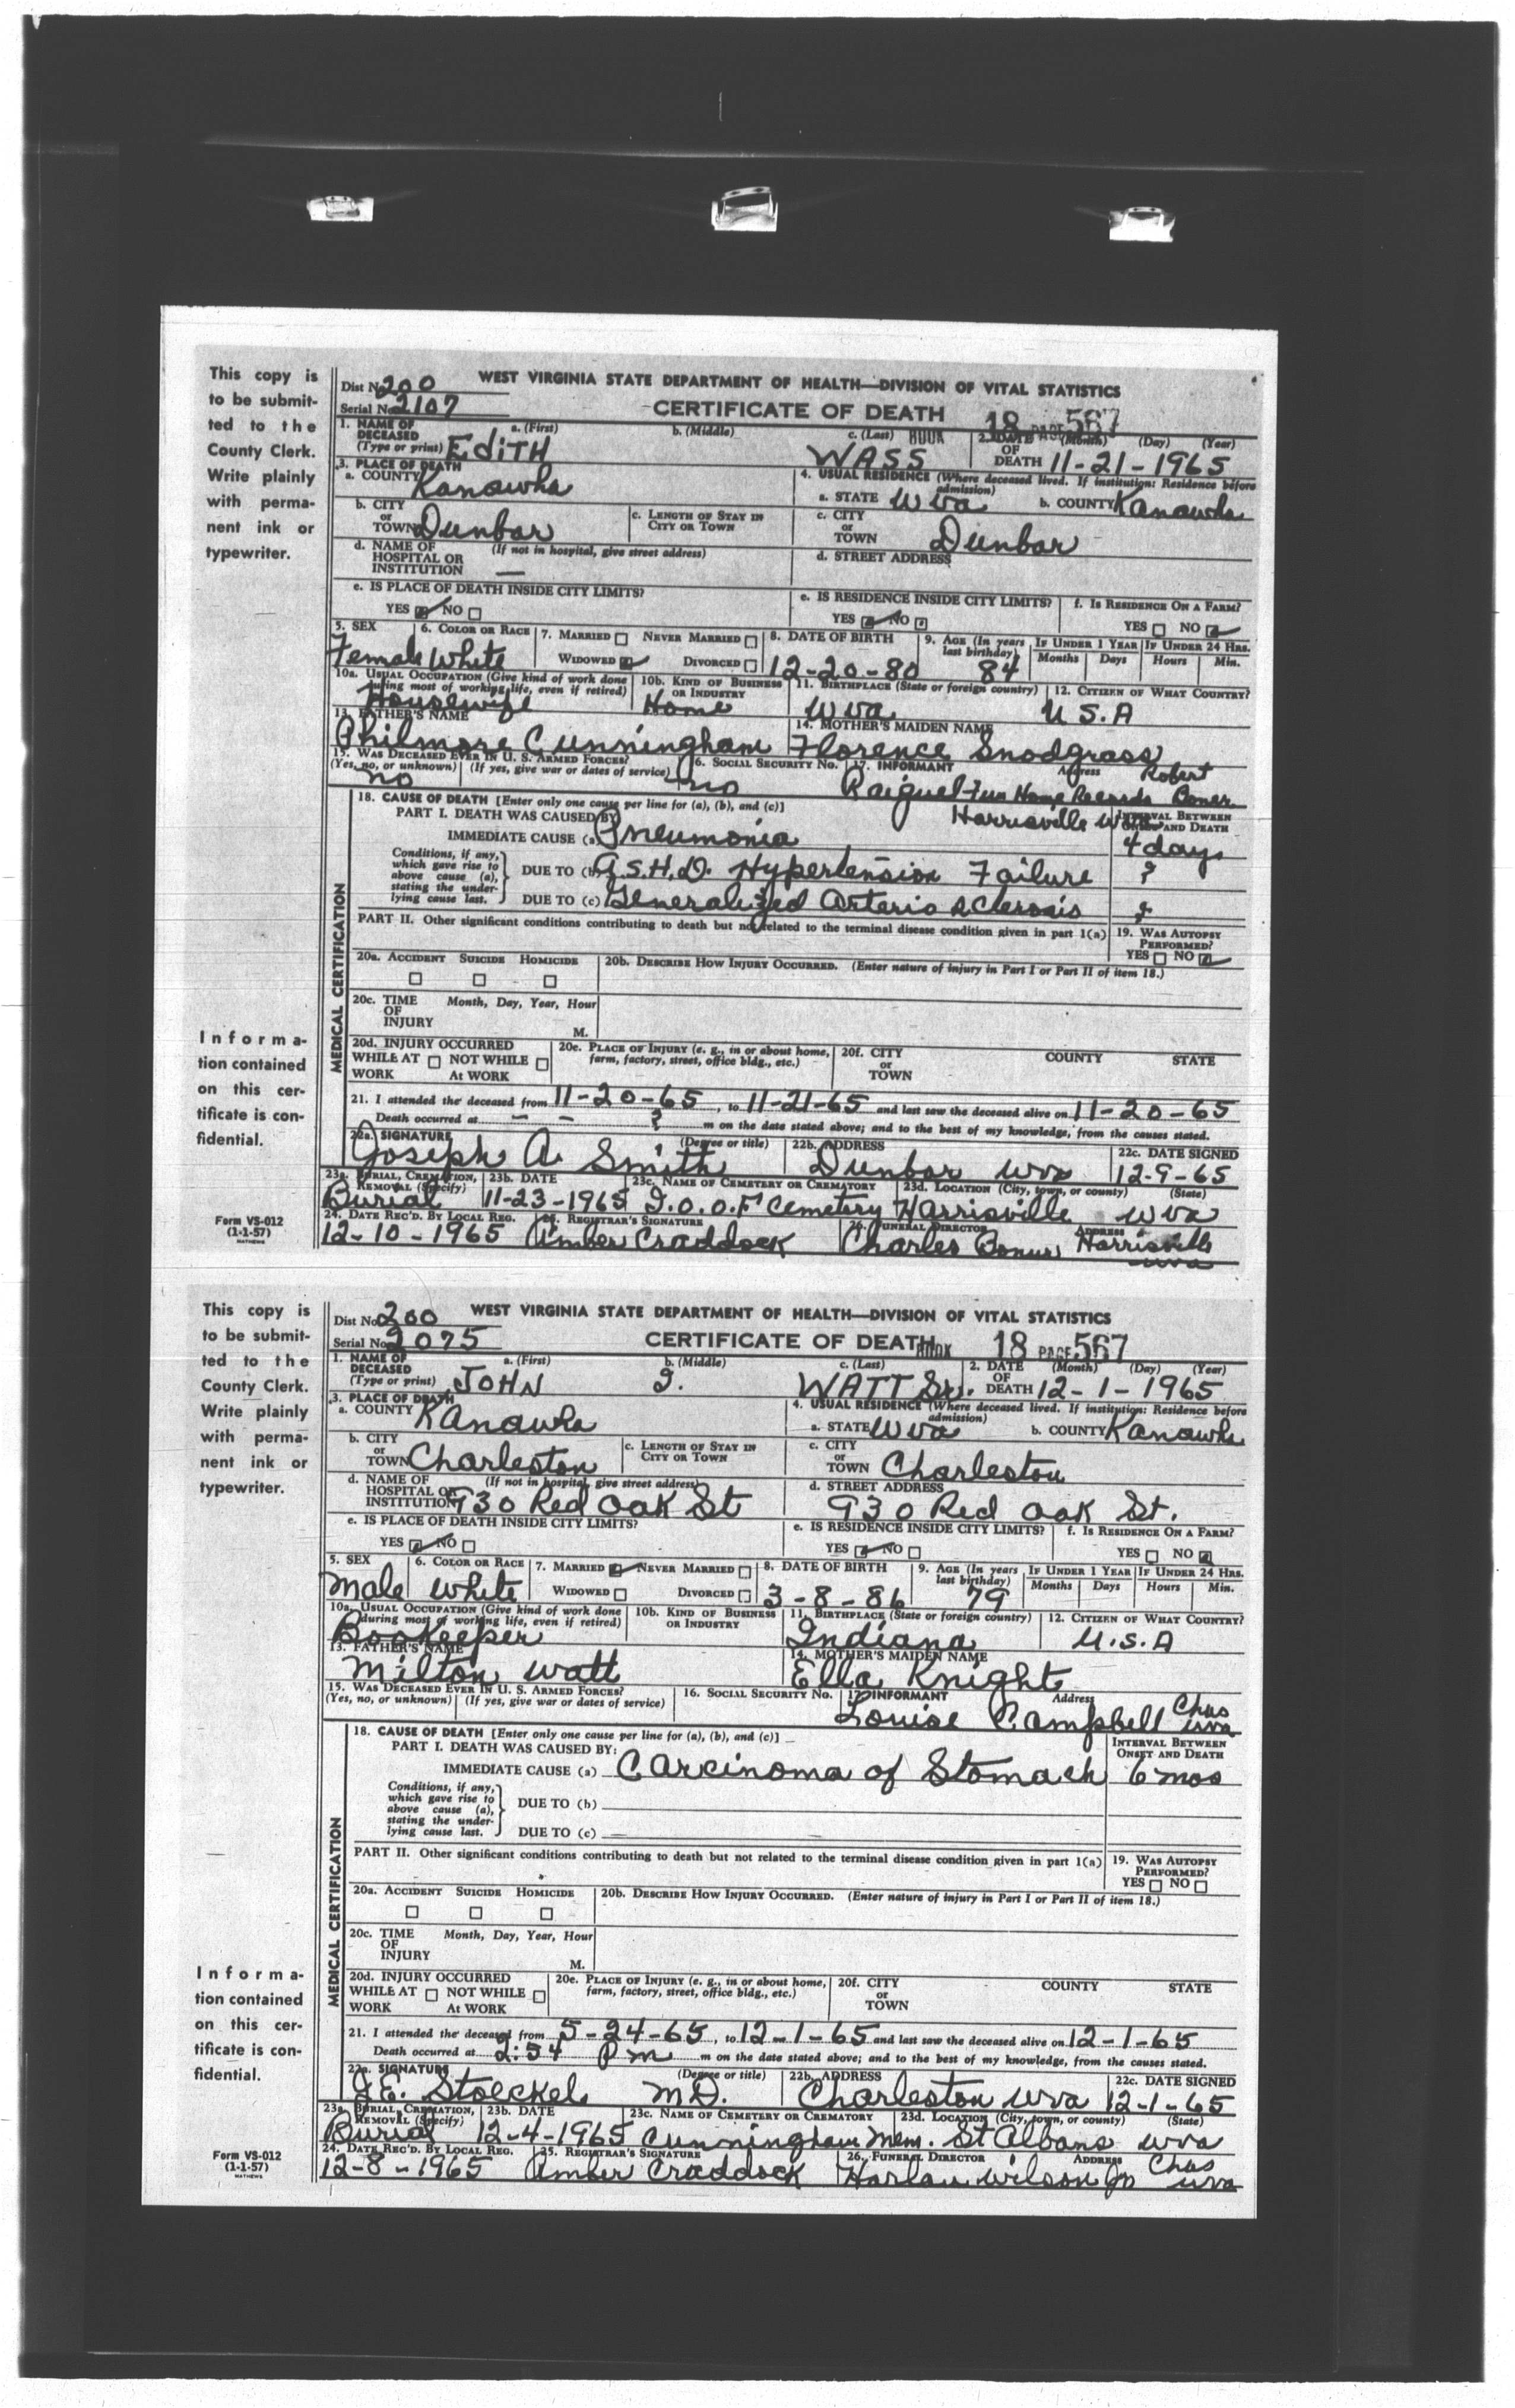 This copy is
to be submit-
ted to the
County Clerk.
Write plainly
with perma-
nent ink or
typewriter.
Informa-
tion contained
on this cer-
tificate is con-
fidential.
Form VS-012
(1-1-57)
MATHEWS
Dist No. 200 WEST VIRGINIA STATE DEPARTMENT OF HEALTH—DIVISION OF VITAL STATISTICS
Serial No. 2107 CERTIFICATE OF DEATH BOOK 18 PAGE 567
1. NAME OF DECEASED (Type or print) a. (First) b. (Middle) c. (Last) 2. DATE OF DEATH (Month) (Day) (Year)
EdiTH WASS 11-21-1965
3. PLACE OF DEATH 4. USUAL RESIDENCE (Where deceased lived. If institution: Residence before admission)
a. COUNTY Kanawha a. STATE W Va b. COUNTY Kanawha
b. CITY or TOWN Dunbar c. LENGTH OF STAY IN CITY OR TOWN c. CITY or TOWN Dunbar
d. NAME OF HOSPITAL OR INSTITUTION (If not in hospital, give street address) — d. STREET ADDRESS
e. IS PLACE OF DEATH INSIDE CITY LIMITS? e. IS RESIDENCE INSIDE CITY LIMITS? f. IS RESIDENCE ON A FARM?
YES NO YES NO YES NO
5. SEX 6. COLOR OR RACE 7. MARRIED NEVER MARRIED 8. DATE OF BIRTH 9. AGE (In years last birthday) IF UNDER 1 YEAR IF UNDER 24 HRS.
Female White WIDOWED DIVORCED 12-20-80 84 Months Days Hours Min.
10a. USUAL OCCUPATION (Give kind of work done during most of working life, even if retired) 10b. KIND OF BUSINESS OR INDUSTRY 11. BIRTHPLACE (State or foreign country) 12. CITIZEN OF WHAT COUNTRY?
Housewife Home W Va U.S.A
13. FATHER'S NAME 14. MOTHER'S MAIDEN NAME
Philmore Cunningham Florence Snodgrass
15. WAS DECEASED EVER IN U. S. ARMED FORCES? 16. SOCIAL SECURITY NO. 17. INFORMANT Address
(Yes, no, or unknown) (If yes, give war or dates of service) Robert
no no Raiguel Fun Home Records Boner
Harrisville W Va
18. CAUSE OF DEATH [Enter only one cause per line for (a), (b), and (c)]
PART I. DEATH WAS CAUSED BY: INTERVAL BETWEEN ONSET AND DEATH
IMMEDIATE CAUSE (a) Pneumonia 4 days
Conditions, if any, which gave rise to above cause (a), stating the underlying cause last.
DUE TO (b) A.S.H.D. Hypertension Failure ?
DUE TO (c) Generalized Arterio Sclerosis ?
PART II. Other significant conditions contributing to death but not related to the terminal disease condition given in part 1(a) 19. WAS AUTOPSY PERFORMED?
YES NO
20a. ACCIDENT SUICIDE HOMICIDE 20b. DESCRIBE HOW INJURY OCCURRED. (Enter nature of injury in Part I or Part II of item 18.)
20c. TIME OF INJURY Month, Day, Year, Hour
M.
MEDICAL CERTIFICATION
20d. INJURY OCCURRED 20e. PLACE OF INJURY (e. g., in or about home, farm, factory, street, office bldg., etc.) 20f. CITY or TOWN COUNTY STATE
WHILE AT WORK NOT WHILE AT WORK
21. I attended the deceased from 11-20-65, to 11-21-65 and last saw the deceased alive on 11-20-65
Death occurred at — — ? m on the date stated above; and to the best of my knowledge, from the causes stated.
22a. SIGNATURE (Degree or title) 22b. ADDRESS 22c. DATE SIGNED
Joseph A. Smith Dunbar W Va 12-9-65
23a. BURIAL, CREMATION, REMOVAL (Specify) 23b. DATE 23c. NAME OF CEMETERY OR CREMATORY 23d. LOCATION (City, town, or county) (State)
Burial 11-23-1965 I.O.O.F Cemetery Harrisville W Va
24. DATE REC'D. BY LOCAL REG. 25. REGISTRAR'S SIGNATURE 26. FUNERAL DIRECTOR ADDRESS
12-10-1965 Amber Craddock Charles Harrisville W Va
This copy is
to be submit-
ted to the
County Clerk.
Write plainly
with perma-
nent ink or
typewriter.
Informa-
tion contained
on this cer-
tificate is con-
fidential.
Form VS-012
(1-1-57)
MATHEWS
Dist No. 200 WEST VIRGINIA STATE DEPARTMENT OF HEALTH—DIVISION OF VITAL STATISTICS
Serial No. 2075 CERTIFICATE OF DEATH BOOK 18 PAGE 567
1. NAME OF DECEASED (Type or print) a. (First) b. (Middle) c. (Last) 2. DATE OF DEATH (Month) (Day) (Year)
JOHN I. WATT Sr. 12-1-1965
3. PLACE OF DEATH 4. USUAL RESIDENCE (Where deceased lived. If institution: Residence before admission)
a. COUNTY Kanawha a. STATE W Va b. COUNTY Kanawha
b. CITY or TOWN Charleston c. LENGTH OF STAY IN CITY OR TOWN c. CITY or TOWN Charleston
d. NAME OF HOSPITAL OR INSTITUTION (If not in hospital, give street address) d. STREET ADDRESS
930 Red Oak St 930 Red Oak St.
e. IS PLACE OF DEATH INSIDE CITY LIMITS? e. IS RESIDENCE INSIDE CITY LIMITS? f. IS RESIDENCE ON A FARM?
YES NO YES NO YES NO
5. SEX 6. COLOR OR RACE 7. MARRIED NEVER MARRIED 8. DATE OF BIRTH 9. AGE (In years last birthday) IF UNDER 1 YEAR IF UNDER 24 HRS.
Male White WIDOWED DIVORCED 3-8-86 79 Months Days Hours Min.
10a. USUAL OCCUPATION (Give kind of work done during most of working life, even if retired) 10b. KIND OF BUSINESS OR INDUSTRY 11. BIRTHPLACE (State or foreign country) 12. CITIZEN OF WHAT COUNTRY?
Bookeeper Indiana U.S.A
13. FATHER'S NAME 14. MOTHER'S MAIDEN NAME
Milton Watt Ella Knight
15. WAS DECEASED EVER IN U. S. ARMED FORCES? 16. SOCIAL SECURITY NO. 17. INFORMANT Address
(Yes, no, or unknown) (If yes, give war or dates of service)
Louise Campbell Chas W Va
18. CAUSE OF DEATH [Enter only one cause per line for (a), (b), and (c)]
PART I. DEATH WAS CAUSED BY: INTERVAL BETWEEN ONSET AND DEATH
IMMEDIATE CAUSE (a) Carcinoma of Stomach 6 mos
Conditions, if any, which gave rise to above cause (a), stating the underlying cause last.
DUE TO (b)
DUE TO (c)
PART II. Other significant conditions contributing to death but not related to the terminal disease condition given in part 1(a) 19. WAS AUTOPSY PERFORMED?
YES NO
20a. ACCIDENT SUICIDE HOMICIDE 20b. DESCRIBE HOW INJURY OCCURRED. (Enter nature of injury in Part I or Part II of item 18.)
20c. TIME OF INJURY Month, Day, Year, Hour
M.
MEDICAL CERTIFICATION
20d. INJURY OCCURRED 20e. PLACE OF INJURY (e. g., in or about home, farm, factory, street, office bldg., etc.) 20f. CITY or TOWN COUNTY STATE
WHILE AT WORK NOT WHILE AT WORK
21. I attended the deceased from 5-24-65, to 12-1-65 and last saw the deceased alive on 12-1-65
Death occurred at 2:54 P m m on the date stated above; and to the best of my knowledge, from the causes stated.
22a. SIGNATURE (Degree or title) 22b. ADDRESS 22c. DATE SIGNED
J.E. Stoeckel M.D. Charleston W Va 12-1-65
23a. BURIAL, CREMATION, REMOVAL (Specify) 23b. DATE 23c. NAME OF CEMETERY OR CREMATORY 23d. LOCATION (City, town, or county) (State)
Burial 12-4-1965 Cunningham Mem. St Albans W Va
24. DATE REC'D. BY LOCAL REG. 25. REGISTRAR'S SIGNATURE 26. FUNERAL DIRECTOR ADDRESS
12-8-1965 Amber Craddock Harlan Wilson Jr Chas W Va